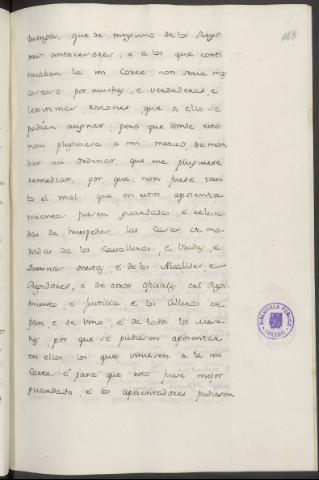 168
huespa, que de ninguno de los Reyes
mis antecesores, e a los que conti
nuaban la mi Corte non seria ne
cesario por muchas, e verdaderas, e
lexitimas razones, que a ello se
podian asignar, pero que donde esto
non pluguiera a mi merced, de man
dar asi ordenar, que me pluguiese
remediar, por que non fuese tan
to el mal que en estos aposenta
mientos fuesen guardadas, e releva
das de huespedes las Casas et mo
radas de los Cavalleros, e Viudas, e
Duennas onestas, e de los Alcaldes, e
Regidores, e de otros oficiales, del Regi
miento, e Justicia e los Cilleros de
pan, e de vino, e de todos los
por que se pudiesen aposentar
en ellos los que viniesen a la mi
Corte e para que esto fuese mejor
guardado, e los aposentadores pudiesen
BIBLIOTECA PÚBLICA
TOLEDO